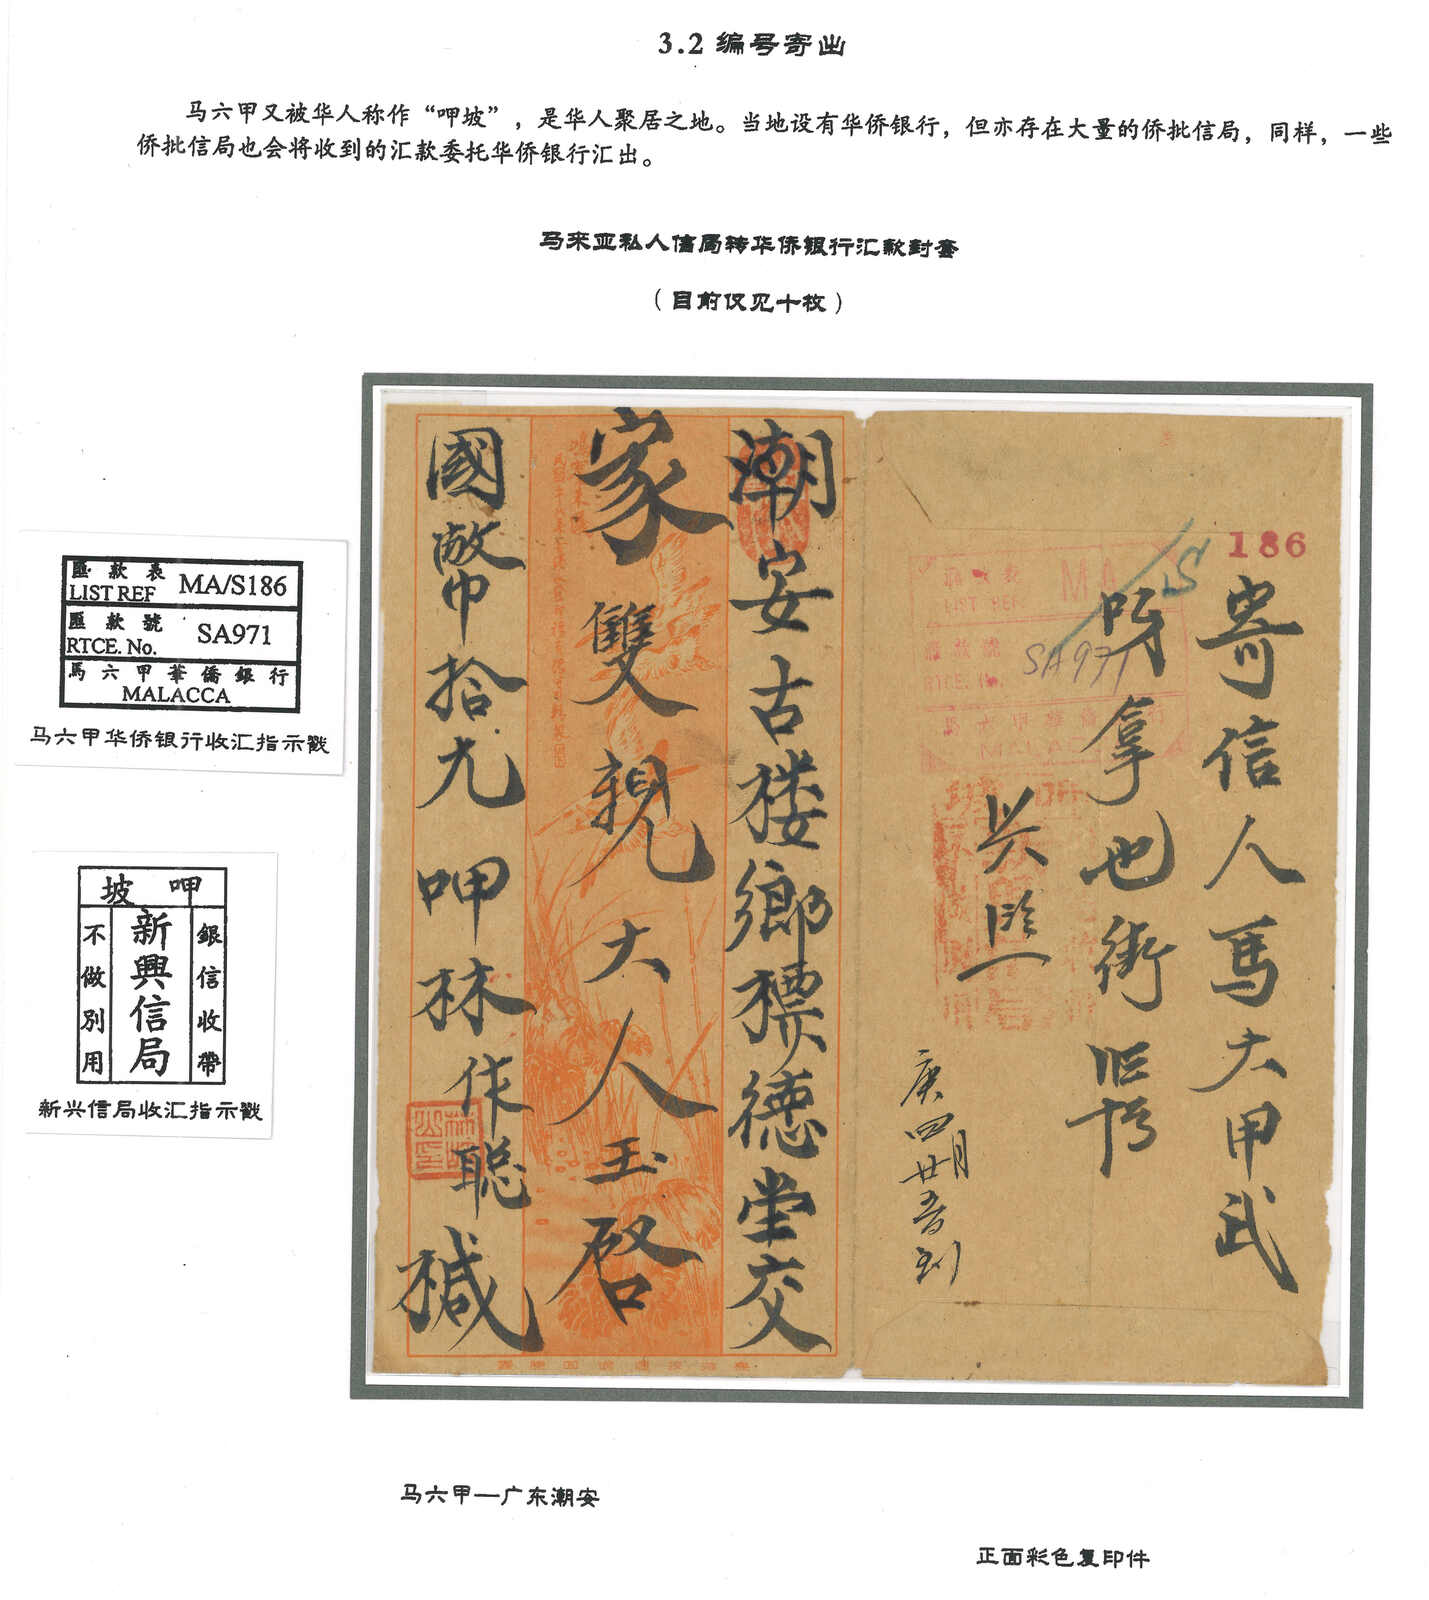 3.2 编号寄出
马六甲又被华人称作“呷坡”，是华人聚居之地。当地设有华侨银行，但亦存在大量的侨批信局，同样，一些
侨批信局也会将收到的汇款委托华侨银行汇出。
马来亚私人信局转华侨银行汇款封套
（目前仅见十枚）
匯款表
LIST REF MA/S186
匯款號
RTCE. No. SA971
馬六甲華僑銀行
MALACCA
马六甲华侨银行收汇指示戳
呷坡
銀信收帶
新興信局
不做別用
新兴信局收汇指示戳
186
寄信人馬六甲武
呀拿也街
MA/S
LIST REF.
SA971
RTCE. No.
庚四月廿
到
潮安古楼鄉標德堂交
家雙親大人玉啓
國幣拾九 呷林作聪械
马六甲—广东潮安
正面彩色复印件